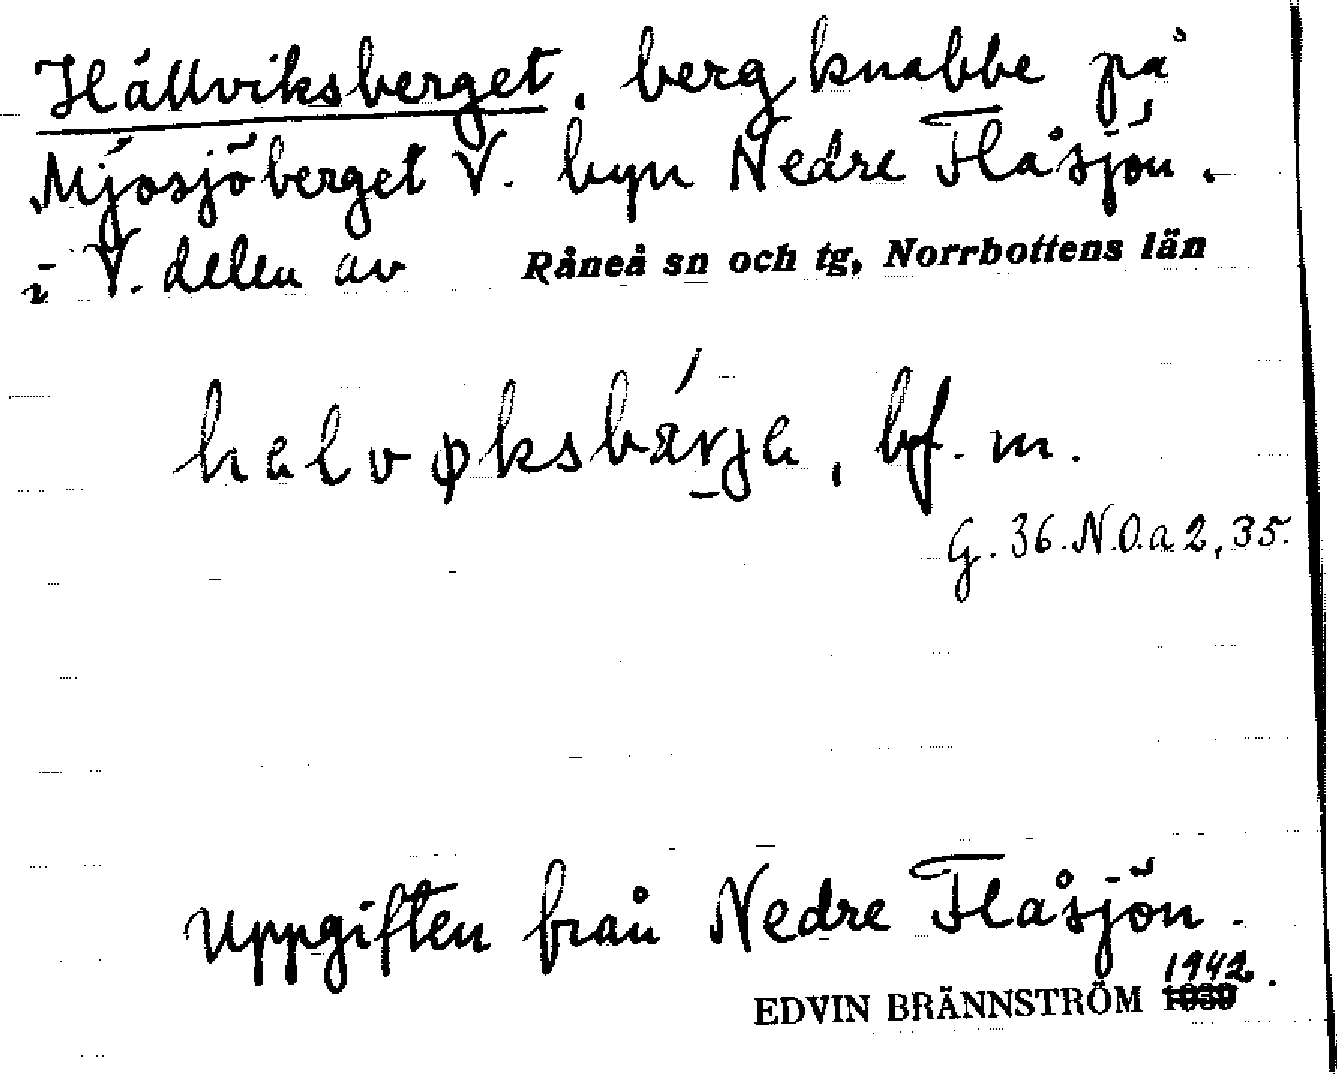 Hällviksberget, bergknabbe på
Mjösjöberget V. byn Nedre Flåsjön.
i V. delen av Råneå sn och tg, Norrbottens län
bf. m.
G. 36. N.O.a 2, 35.
Uppgiften från Nedre Flåsjön.
1942.
EDVIN BRÄNNSTRÖM 1939